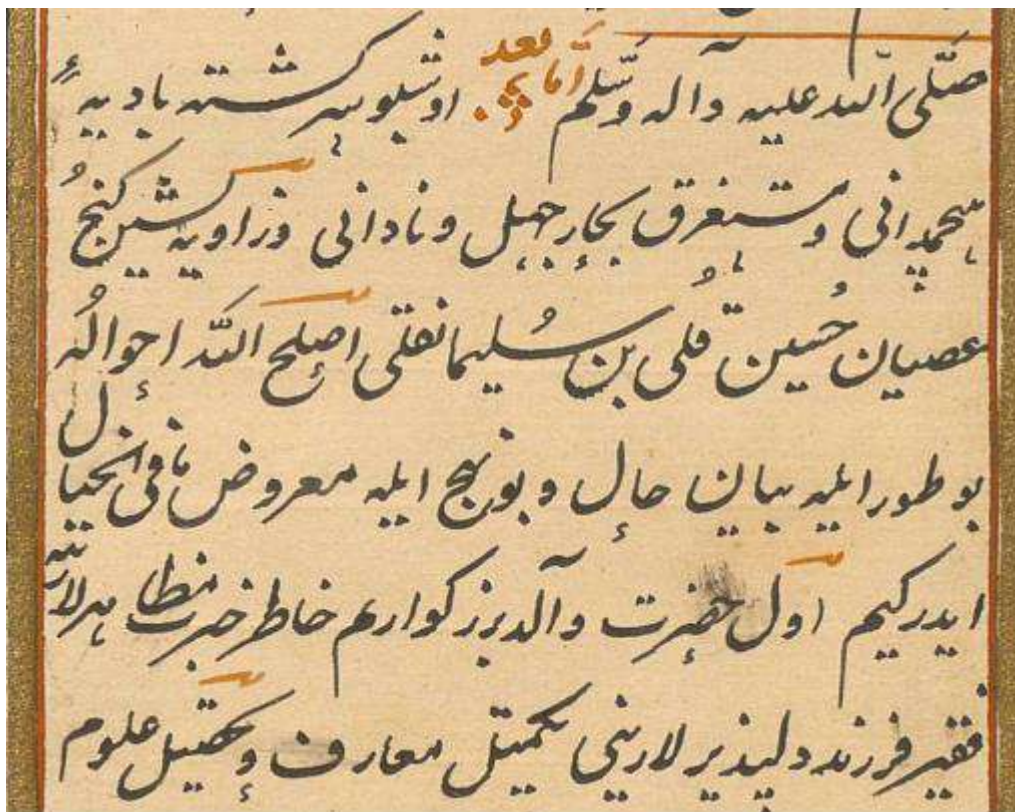 صَلَّی اللّه علیه وآله وسّلم امّا بعد اوشبو سرگشته بادیهٔ
هیچمدانی و مستغرق بحار جهل و نادانی و زاویه نشین کنج
عصیان حُسین قُلی بن سُلیمانقلی اصلح اللّه احوالُه
بو طور ایله بیان حال و بو نهج ایله معروض مافی الخیال
ایدرکیم اول حضرت والد بزرکوارم خاطر
فقیر فرزند دلپذیرلارینی تکمیل معارف و تحصیل علوم